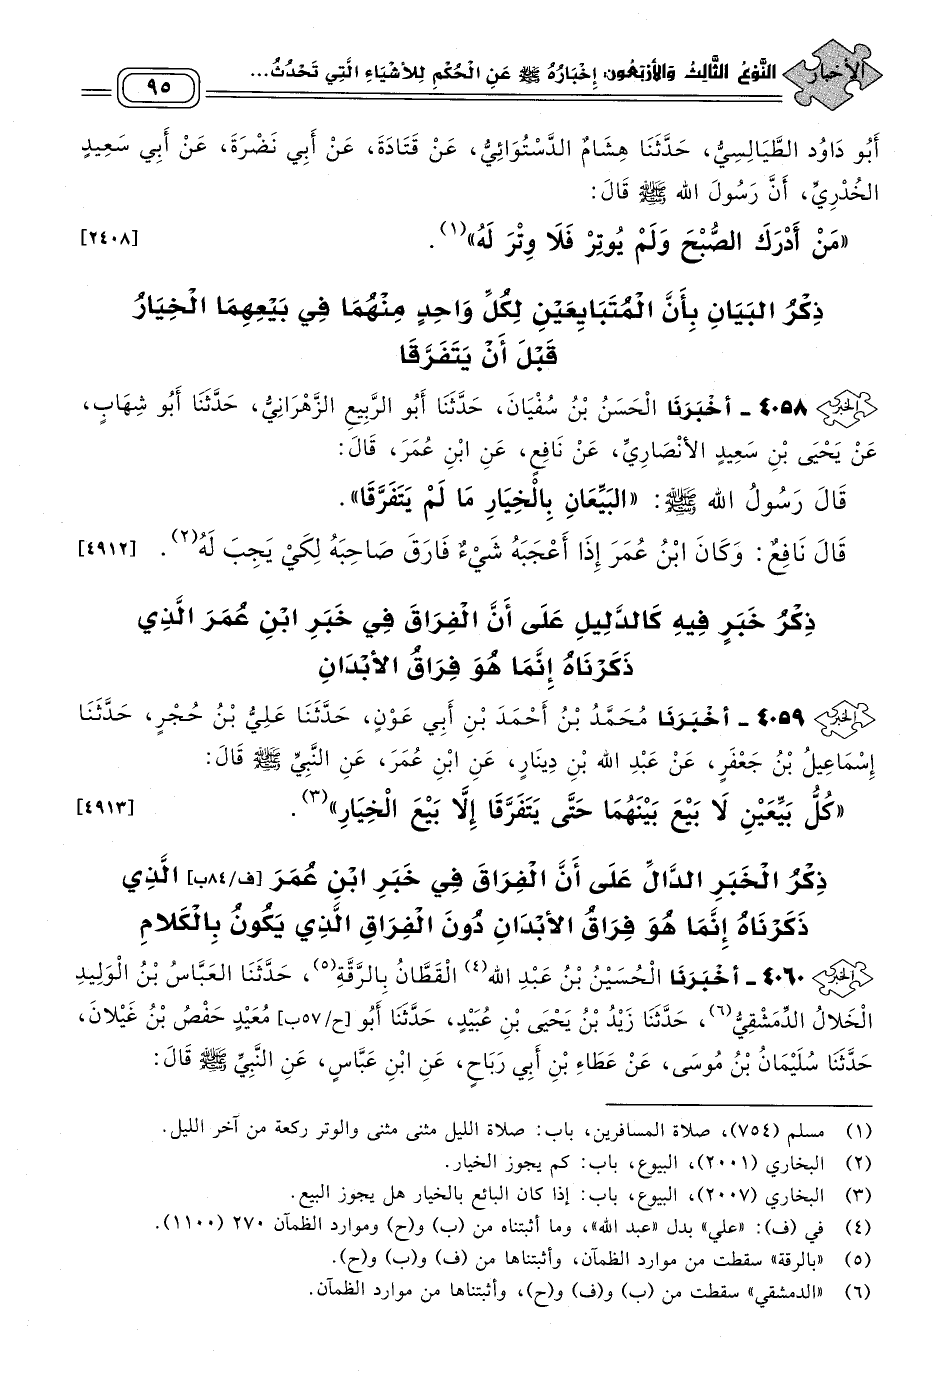 الأخبار
النَّوْعُ الثَّالِثُ وَالأَرْبَعُونَ: إِخْبَارُهُ ﷺ عَنِ الْحُكْمِ لِلأَشْيَاءِ الَّتِي تَحْدُثُ...
٩٥
أَبُو دَاوُد الطَّيَالِسِيُّ، حَدَّثَنَا هِشَامٌ الدَّسْتُوَائِيُّ، عَنْ قَتَادَةَ، عَنْ أَبِي نَضْرَةَ، عَنْ أَبِي سَعِيدٍ
الخُدْرِيِّ، أَنَّ رَسُولَ الله ﷺ قَالَ:
«مَنْ أَدْرَكَ الصُّبْحَ وَلَمْ يُوتِرْ فَلَا وِتْرَ لَهُ»(١). [٢٤٠٨]
ذِكْرُ البَيَانِ بِأَنَّ الْمُتَبَايِعَيْنِ لِكُلِّ وَاحِدٍ مِنْهُمَا فِي بَيْعِهِمَا الْخِيَارُ
قَبْلَ أَنْ يَتَفَرَّقَا
الخبر ٤٠٥٨ - أَخْبَرَنَا الْحَسَنُ بْنُ سُفْيَانَ، حَدَّثَنَا أَبُو الرَّبِيعِ الزَّهْرَانِيُّ، حَدَّثَنَا أَبُو شِهَابٍ،
عَنْ يَحْيَى بْنِ سَعِيدٍ الأَنْصَارِيِّ، عَنْ نَافِعٍ، عَنِ ابْنِ عُمَرَ، قَالَ:
قَالَ رَسُولُ الله ﷺ: «البَيِّعَانِ بِالْخِيَارِ مَا لَمْ يَتَفَرَّقَا».
قَالَ نَافِعٌ: وَكَانَ ابْنُ عُمَرَ إِذَا أَعْجَبَهُ شَيْءٌ فَارَقَ صَاحِبَهُ لِكَيْ يَجِبَ لَهُ(٢). [٤٩١٢]
ذِكْرُ خَبَرٍ فِيهِ كَالدَّلِيلِ عَلَى أَنَّ الْفِرَاقَ فِي خَبَرِ ابْنِ عُمَرَ الَّذِي
ذَكَرْنَاهُ إِنَّمَا هُوَ فِرَاقُ الأَبْدَانِ
الخبر ٤٠٥٩ - أَخْبَرَنَا مُحَمَّدُ بْنُ أَحْمَدَ بْنِ أَبِي عَوْنٍ، حَدَّثَنَا عَلِيُّ بْنُ حُجْرٍ، حَدَّثَنَا
إِسْمَاعِيلُ بْنُ جَعْفَرٍ، عَنْ عَبْدِ الله بْنِ دِينَارٍ، عَنِ ابْنِ عُمَرَ، عَنِ النَّبِيِّ ﷺ قَالَ:
«كُلُّ بَيِّعَيْنِ لَا بَيْعَ بَيْنَهُمَا حَتَّى يَتَفَرَّقَا إِلَّا بَيْعَ الْخِيَارِ»(٣). [٤٩١٣]
ذِكْرُ الْخَبَرِ الدَّالِّ عَلَى أَنَّ الْفِرَاقَ فِي خَبَرِ ابْنِ عُمَرَ [ف/٨٤ب] الَّذِي
ذَكَرْنَاهُ إِنَّمَا هُوَ فِرَاقُ الأَبْدَانِ دُونَ الْفِرَاقِ الَّذِي يَكُونُ بِالْكَلَامِ
الخبر ٤٠٦٠ - أَخْبَرَنَا الْحُسَيْنُ بْنُ عَبْدِ الله(٤) الْقَطَّانُ بِالرَّقَّةِ(٥)، حَدَّثَنَا العَبَّاسُ بْنُ الْوَلِيدِ
الْخَلالُ الدِّمَشْقِيُّ(٦)، حَدَّثَنَا زَيْدُ بْنُ يَحْيَى بْنِ عُبَيْدٍ، حَدَّثَنَا أَبُو [ح/٥٧ب] مُعَيْدٍ حَفْصُ بْنُ غَيْلَانَ،
حَدَّثَنَا سُلَيْمَانُ بْنُ مُوسَى، عَنْ عَطَاءِ بْنِ أَبِي رَبَاحٍ، عَنِ ابْنِ عَبَّاسٍ، عَنِ النَّبِيِّ ﷺ قَالَ:
(١) مسلم (٧٥٤)، صلاة المسافرين، باب: صلاة الليل مثنى مثنى والوتر ركعة من آخر الليل.
(٢) البخاري (٢٠٠١)، البيوع، باب: كم يجوز الخيار.
(٣) البخاري (٢٠٠٧)، البيوع، باب: إذا كان البائع بالخيار هل يجوز البيع.
(٤) في (ف): «علي» بدل «عبد الله»، وما أثبتناه من (ب) و(ح) وموارد الظمآن ٢٧٠ (١١٠٠).
(٥) «بالرقة» سقطت من موارد الظمآن، وأثبتناها من (ف) و(ب) و(ح).
(٦) «الدمشقي» سقطت من (ب) و(ف) و(ح)، وأثبتناها من موارد الظمآن.